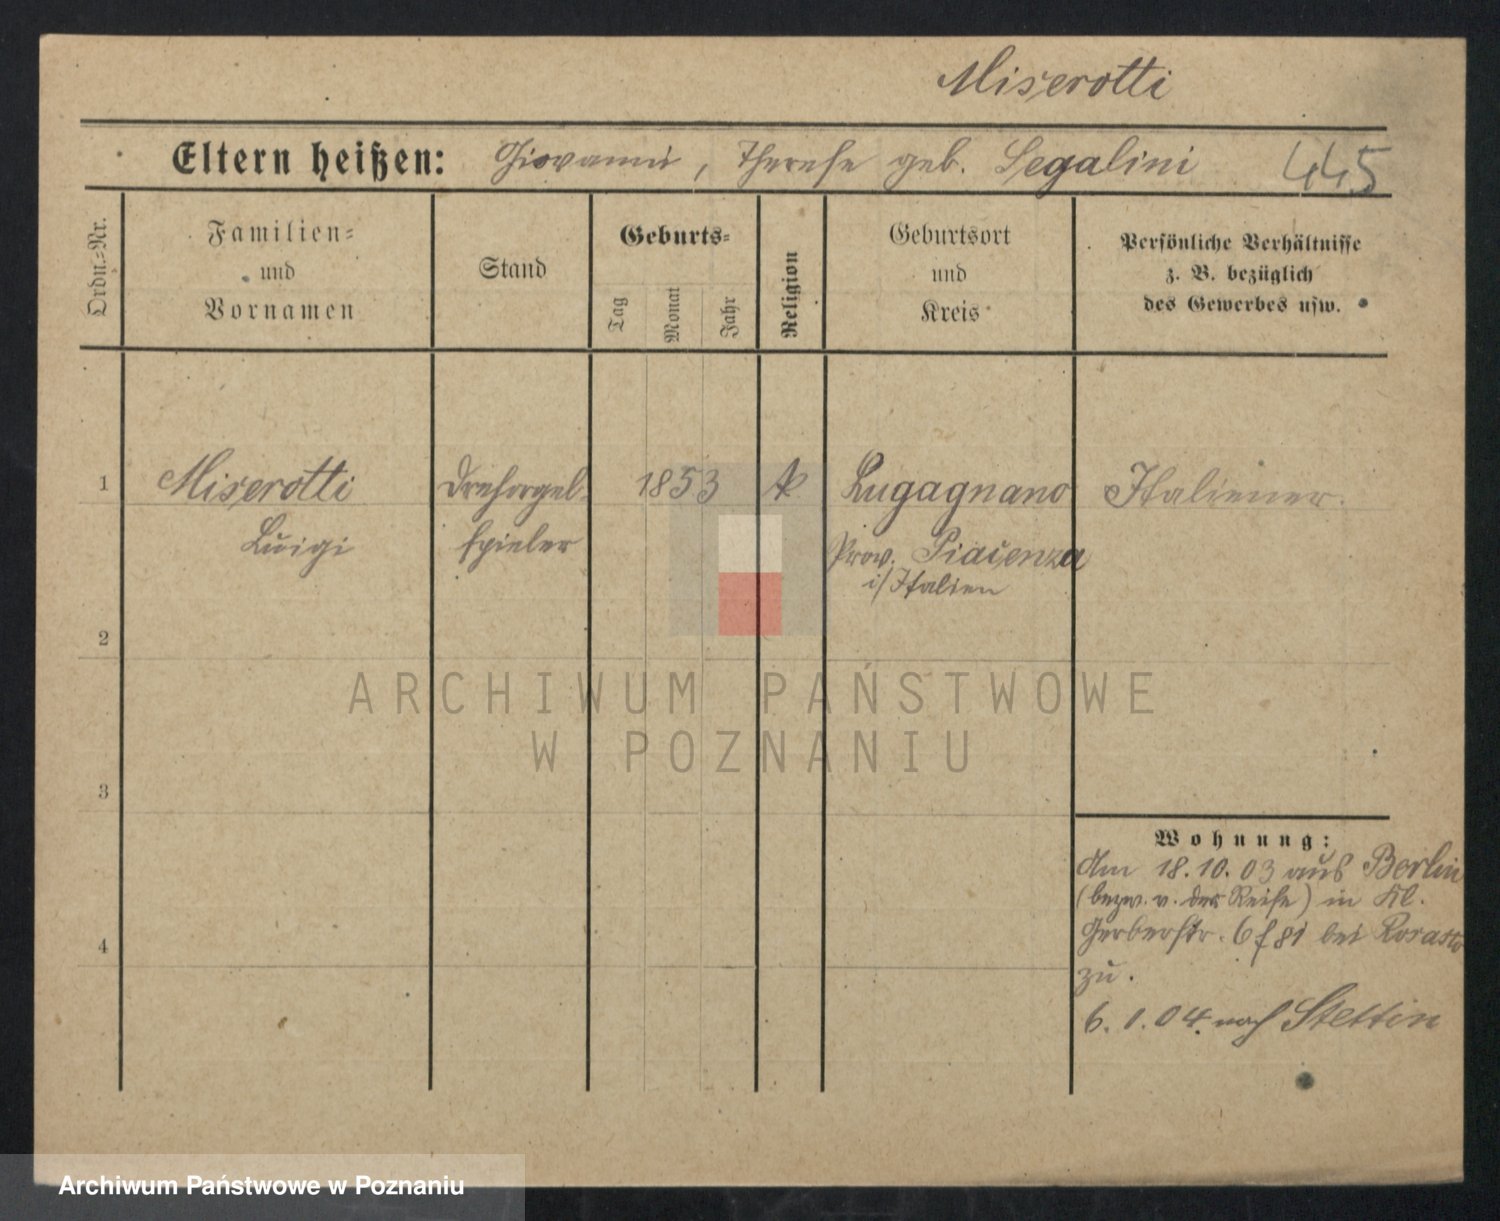 Miserotti
Eltern heißen: Giovanni, Therese geb. Segalini 445
Ordn.-Nr.
Familien-
und
Vornamen
Stand
Geburts-
Tag
Monat
Jahr
Religion
Geburtsort
und
Kreis
Persönliche Verhältnisse
z. B. bezüglich
des Gewerbes usw.
1 Miserotti Drehorgel- 1853 k Lugagnano Italiener.
Luigi spieler Prov. Piacenza
i/Italien
2
ARCHIWUM PAŃSTWOWE
W POZNANIU
3
Wohnung:
Am 18.10.03 aus Berlin
(bezw. v. der Reise) in Kl.
Gerberstr. 6 f 81 bei
4
zu.
6.1.04. nach Stettin
Archiwum Państwowe w Poznaniu